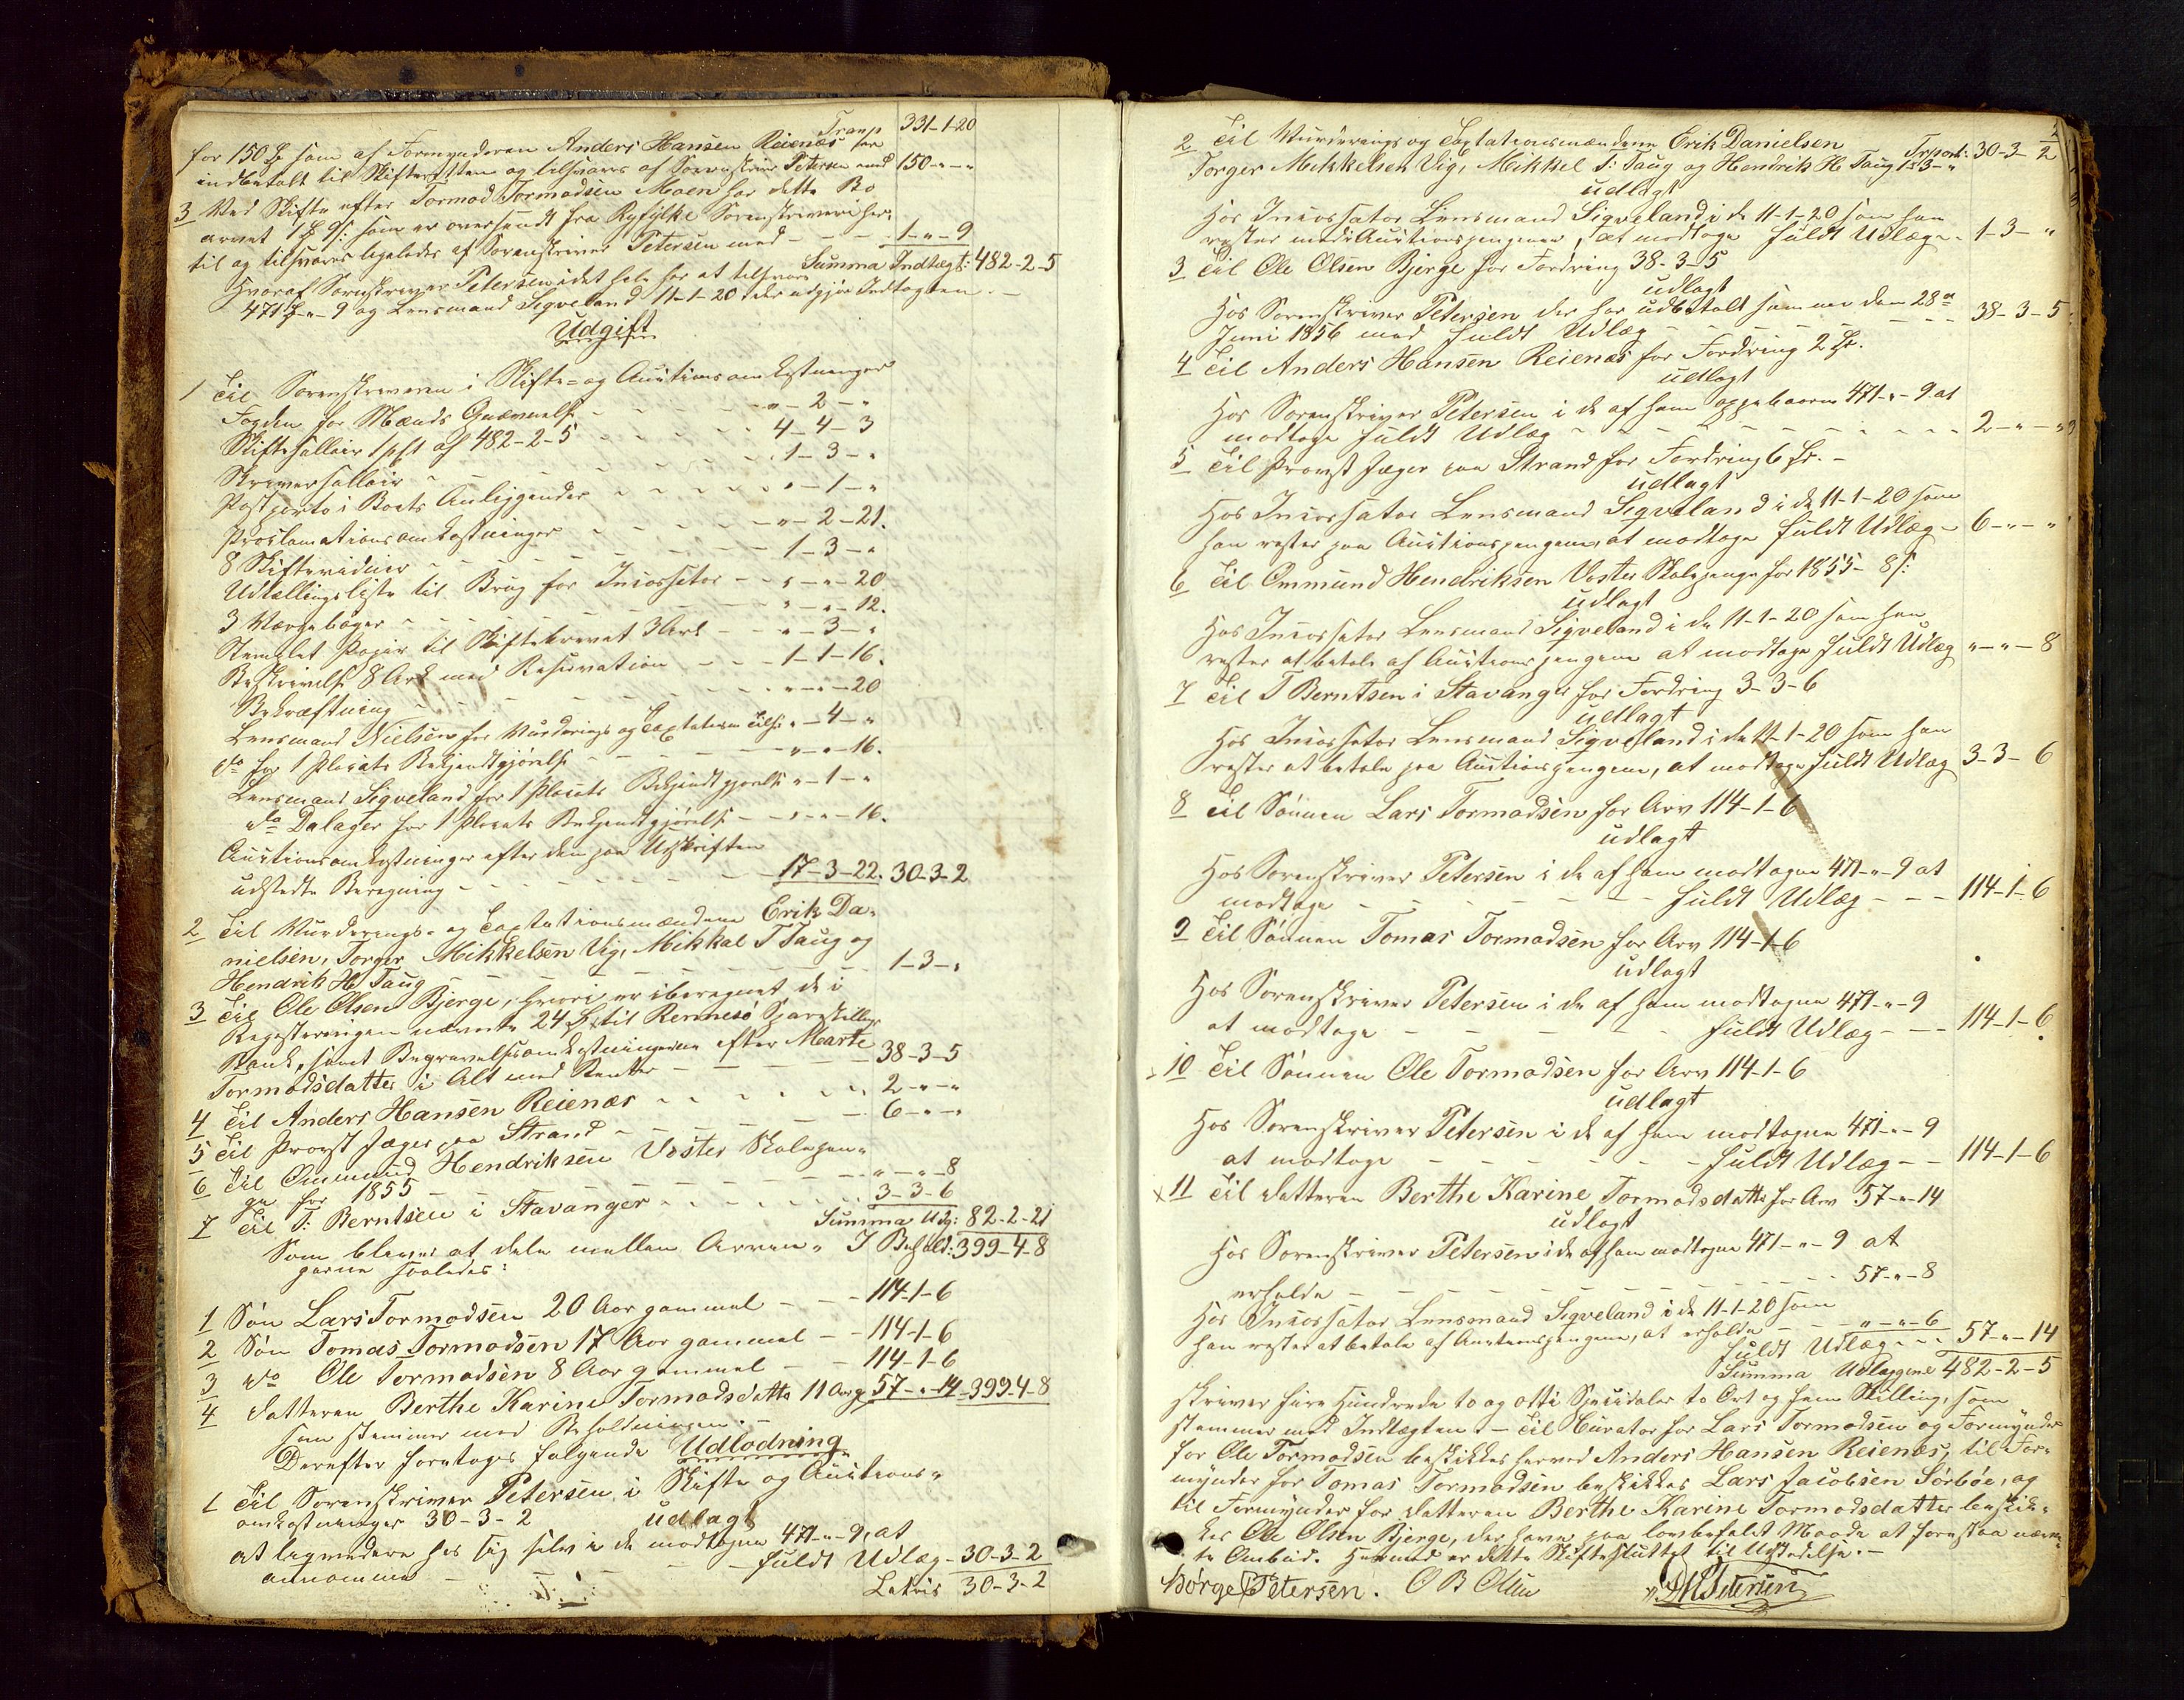 Transp 331-1-20
for 150 Sp som af Formynderen Anders Hansen Reienæs har
indbetalt til Skifteretten og tilsvares af Sorenskriver Petersen med 150-"-"
3 Ved Skifte efter Tormod Tormodsen Moen har dette Bo
arvet 1 Sp 9 s: som er oversendt fra Ryfylke Sorenskriveri her-
til og tilsvares ligeledes af Sorenskriver Petersen med - - - 1-"-9
Summa Indtægt: 482-2-5
Hvoraf Sorenskriver Petersen i det hele har at tilsvare
471 Sp-"-9 og Lensmand Sigveland 11-1-20 der udgjør Indtægten. -
Udgift
1 Til Sorenskriveren i Skifte- og Auctionsomkostninger
Fogden for Mænds Opnævnelse - - - "-2-"
Skiftesallair 1 pCt af 482-2-5 - - - 4-4-3
Skriversallair - - - 1-3-"
Postporto i Boets Anliggender - - - "-1-"
Proclamationsomkostninger - - - "-2-21.
8 Skiftevidner - - - 1-3-"
Udtællingsliste til Brug for Incassator - - "-"-20
3 Værgebøger - - - "-"-12.
Stemplet Papir til Skiftebrevet 3 Ark - - "-3-"
Beskrivelse 8 Ark med Reservation - - - 1-1-16.
Bekræftning - - - "-"-20
Lensmand Nielsen for Vurderings og Taxtationen Tilf: "-4-"
do for 1 Placats Bekjendtgjørelse - - - "-"-16.
Lensmand Sigveland for 1 Placats Bekjendtgjørelse "-1-"
do Dalager for 1 Placats Bekjendtgjørelse - - "-"-16.
Auctionsomkostninger efter den paa Udskriften
udstedte Beregning - - - 17-3-22. 30-3-2
2 Til Vurderings- og Taxtationsmændene Erik Da-
nielsen, Torger Mikkelsen Vig, Mikkal T Taug og
Hendrik H Taug - - - 1-3-"
3 Til Ole Olsen Bjerge, hvori er iberegnet de i
Registreringen nævnte 24 Sp til Rennesø Spareskillings
Bank, samt Begravelsesomkostningerne efter Marte
Tormodsdatter i Alt med Renter - - - 38-3-5
4 Til Anders Hansen Reienæs - - - 2-"-"
5 Til Provst Jæger paa Strand - - - 6-"-"
6 Til Ommund Hendriksen Voster Skolepen-
ge for 1855 - - - "-"-8
7 Til T: Berntsen i Stavanger - - - 3-3-6
Summa Udg: 82-2-21
Som bliver at dele mellem Arvin- I Behold: 399-4-8
gerne saaledes:
1 Søn Lars Tormodsen 20 Aar gammel - - 114-1-6
2 Søn Tomas Tormodsen 17 Aar gammel - - 114-1-6
3 do Ole Tormodsen 8 Aar gammel - - 114-1-6
4 Datteren Berthe Karine Tormodsdatter 11 Aar g. 57-"-14 399-4-8
som stemmer med Beholdningen. -
Derefter foretages følgende Udlodning
1 Til Sorenskriver Petersen i Skifte og Auctions-
omkostninger 30-3-2 udlagt
at lignidere hos sig selv i de modtagne 471-"-9, at
annamme - - - fuldt Udlæg - 30-3-2
Lateris 30-3-2
2
2 Til Vurderings og Taxtationsmændene Erik Danielsen Trsport: 30-3-2
Torger Mikkelsen Vig, Mikkel T: Taug og Hendrik H Taug 1-3-"
udlagt
Hos Incassator Lensmand Sigveland i de 11-1-20 som han
rester med Auctionspengene, at modtage fuldt Udlæg - 1-3-"
3 Til Ole Olsen Bjerge for Fordring 38-3-5
udlagt
Hos Sorenskriver Petersen der har udbetalt samme den 28de
Juni 1856 med fuldt Udlæg - - - 38-3-5
4 Til Anders Hansen Reienæs for Fordring 2 Sp.
udlagt
Hos Sorenskriver Petersen i de af ham oppebaarne 471-"-9 at
modtage fuldt Udlæg - - - 2-"-"
5 Til Provst Jæger paa Strand for Fordring 6 Sp. -
udlagt
Hos Incassator Lensmand Sigveland i de 11-1-20 som
han rester paa Auctionspengene, at modtage fuldt Udlæg - 6-"-"
6 Til Ommund Hendriksen Voster Skolepenge for 1855 - 8 s:
udlagt
Hos Incassator Lensmand Sigveland i de 11-1-20 som han
rester at betale af Auctionspengene at modtage fuldt Udlæg "-"-8
7 Til T Berntsen i Stavanger for Fordring 3-3-6
udlagt
Hos Incassator Lensmand Sigveland i de 11-1-20 som han
rester at betale paa Auctionspengene, at modtage fuldt Udlæg 3-3-6
8 Til Sønnen Lars Tormodsen for Arv 114-1-6
udlagt
Hos Sorenskriver Petersen i de af ham modtagne 471-"-9 at
modtage - - - fuldt Udlæg - - - 114-1-6
9 Til Sønnen Tomas Tormodsen for Arv 114-1-6
udlagt
Hos Sorenskriver Petersen i de af ham modtagne 471-"-9
at modtage - - - fuldt Udlæg - - - 114-1-6
10 Til Sønnen Ole Tormodsen for Arv 114-1-6
udlagt
Hos Sorenskriver Petersen i de af ham modtagne 471-"-9
at modtage - - - fuldt Udlæg - - 114-1-6
x 11 Til Datteren Berthe Karine Tormodsdatter for Arv 57-"-14
udlagt
Hos Sorenskriver Petersen i de af ham modtagne 471-"-9 at
erholde - - - 57-"-8
Hos Incassator Lensmand Sigveland i de 11-1-20 som
han rester at betale af Auctionspengene, at erholde - - - "-"-6
fuldt Udlæg - - 57-"-14
Summa Udlæggene 482-2-5
skriver fire Hundrede to og otti Speciedaler to Ort og fem Skilling, som
stemmer med Indtægten. - Til Curator for Lars Tormodsen og Formynder
for Ole Tormodsen beskikkes herved Anders Hansen Reienæs, til For-
mynder for Tomas Tormodsen beskikkes Lars Jacobsen Sørbøe, og
til Formynder for Datteren Berthe Karine Tormodsdatter beskik-
kes Ole Olsen Bjerge, der have paa lovbefalet Maade at forestaa nævn-
te Ombud. Hermed er dette Skifte sluttet til Udstedelse. -
Børge Petersen. O B Olsen Petersen